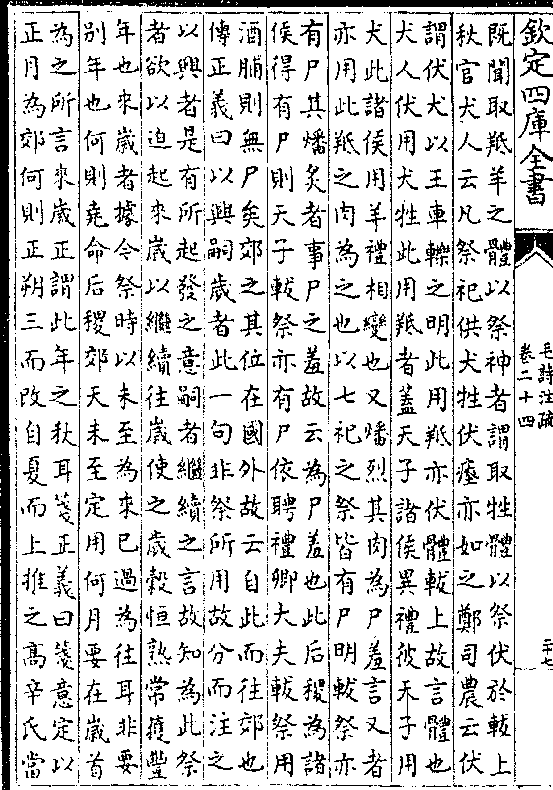 欽定四庫全書
毛詩注疏
卷二十四
三十七
既聞取羝羊之體以祭神者謂取牲體以祭伏於軷上
秋官犬人云凡祭祀供犬牲伏瘞亦如之鄭司農云伏
謂伏犬以王車轢之明此用羝亦伏體軷上故言體也
犬人伏用犬牲此用羝者蓋天子諸侯異禮彼天子用
犬此諸侯用羊禮相變也又燔烈其肉為尸羞言又者
亦用此羝之肉為之也以七祀之祭皆有尸明軷祭亦
有尸其燔炙者事尸之羞故云為尸羞也此后稷為諸
侯得有尸則天子軷祭亦有尸依聘禮卿大夫軷祭用
酒脯則無尸矣郊之其位在國外故云自此而往郊也
傳正義曰以興嗣歲者此一句非祭所用故分而注之
以興者是有所起發之意嗣者繼續之言故知為此祭
者欲以迫起來歲以繼續往歲使之歲穀恒熟常獲豐
年也來歲者據令祭時以未至為來已過為往耳非要
別年也何則堯命后稷郊天未至定用何月要在歲首
為之所言來歲正謂此年之秋耳箋正義曰箋意定以
正月為郊何則正朔三而改自夏而上推之髙辛氏當